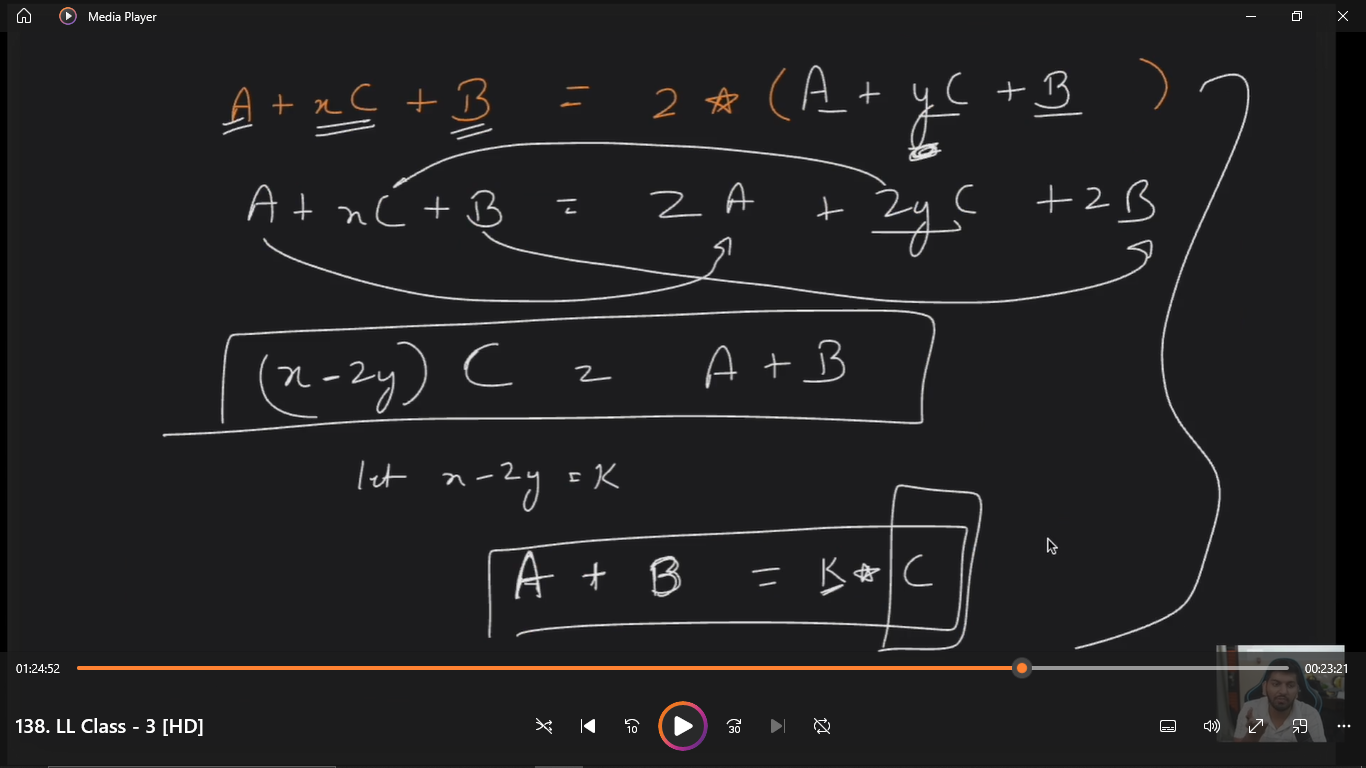 Media Player
A + xC + B = 2 * (A + yC + B)
A + xC + B = 2A + 2yC + 2B
(x-2y) C = A + B
let x-2y = K
A + B = K * C
01:24:52
00:23:21
138. LL Class - 3 [HD]
10
30